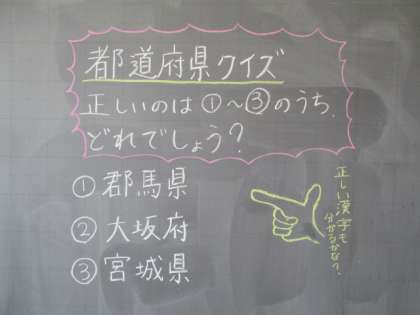 都道府県クイズ
正しいのは①～③のうち、
どれでしょう?
①郡馬県
②大坂府
③宮城県
正しい漢字も
分かるかな?